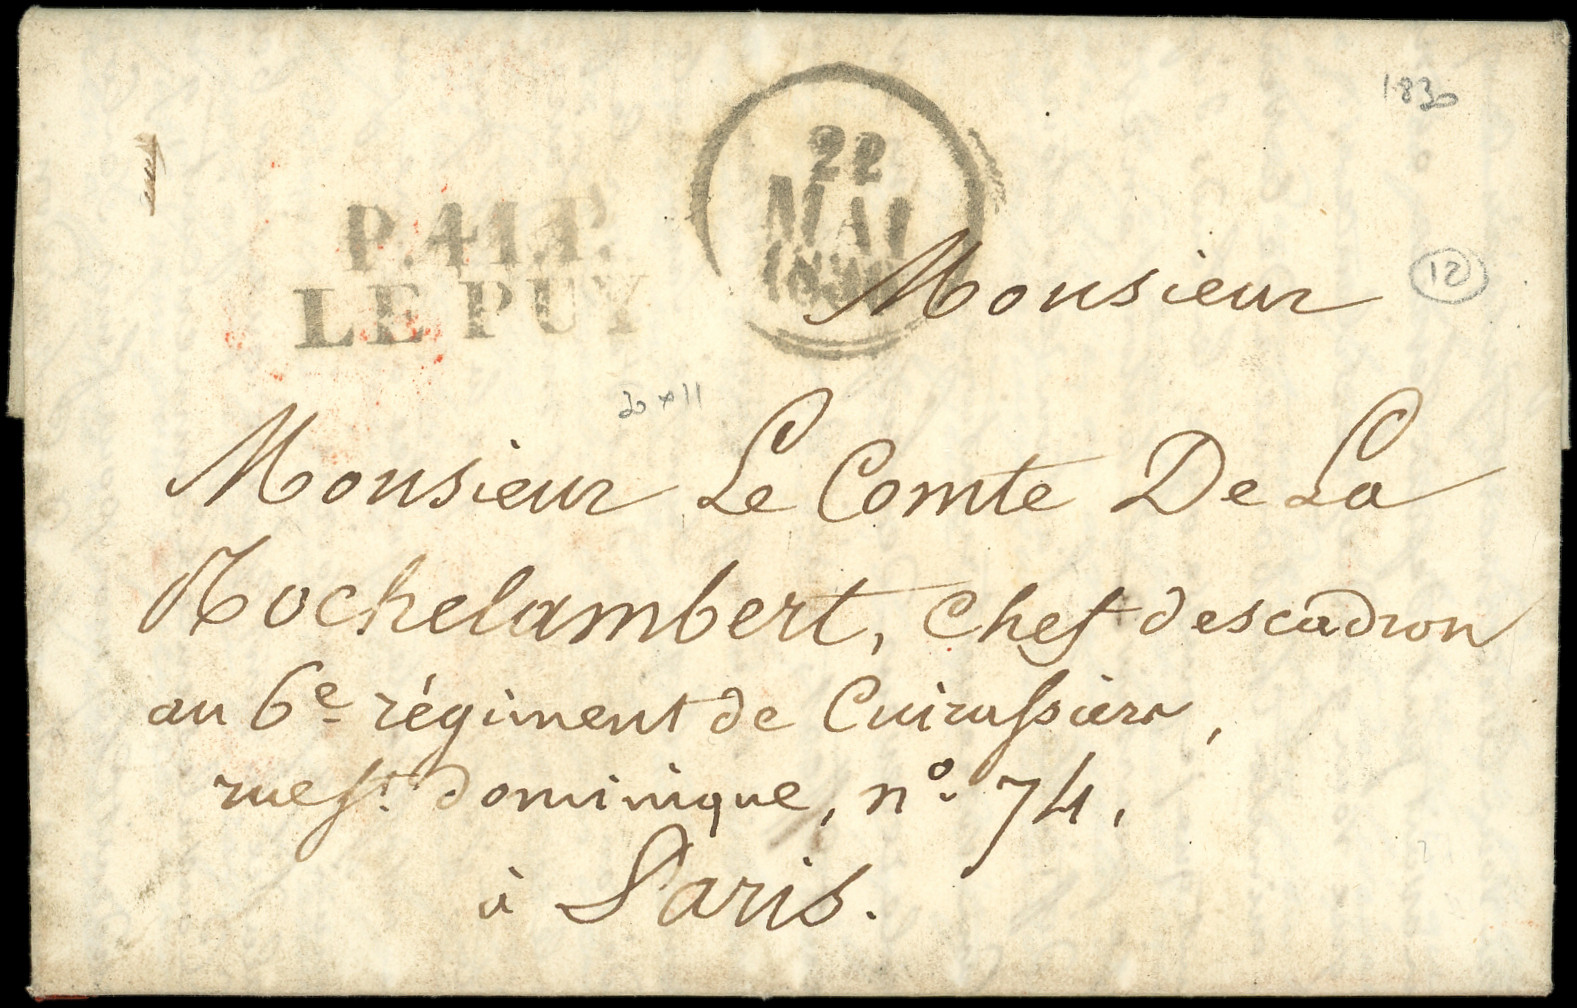 1830
22
MAI
1830
P.41.P.
LE PUY
Monsieur
12
Monsieur Le Comte De La
Rochelambert, chef descadron
au 6e régiment de Cuirassiers,
rue st. dominique, no. 74,
à Paris.